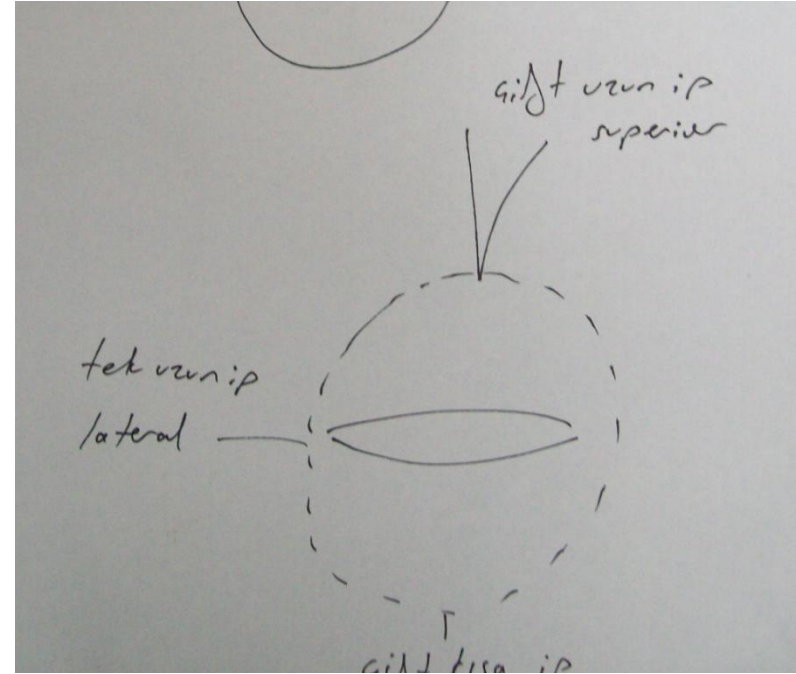 çift uzun ip
superior
tek uzun ip
lateral
çift kısa ip